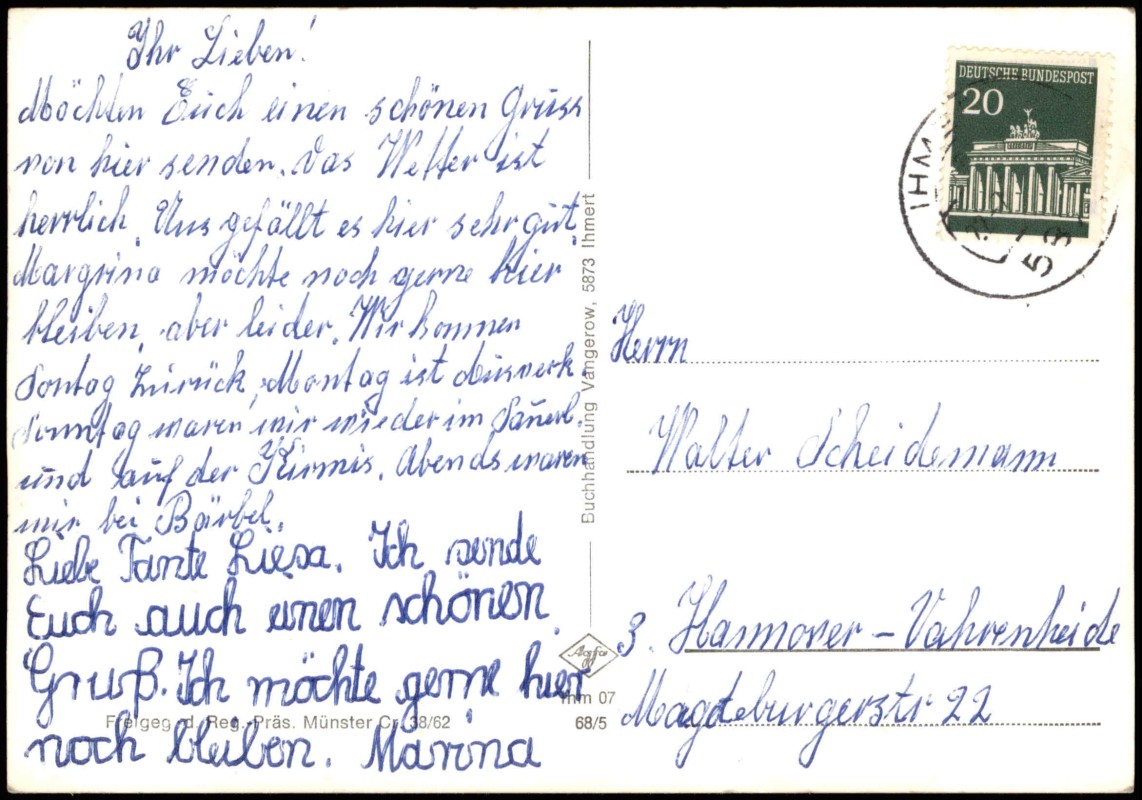 Ihr Lieben!
Möchten Euch einen schönen Gruss
von hier senden. Das Wetter ist
herrlich. Uns gefällt es hier sehr gut.
möchte noch gerne hier
bleiben, aber leider. Wir kommen
Sontag zurück, Montag ist
Sonntag waren wir wieder im Sauerl.
und auf der Kirmis. Abends waren
wir bei Bärbel.
Liebe Tante Liesa. Ich sende
Euch auch einen schönen
Gruß. Ich möchte gerne hier
noch bleiben. Marina
Freigeg. d. Reg.-Präs. Münster Cr. 38/62
Buchhandlung Vangerow, 5873 Ihmert
Agfa
Ihm 07
68/5
DEUTSCHE BUNDESPOST
20
IHM
58
Herrn
Walter Scheidemann
3. Hannover - Vahrenheide
Magdeburgerstr 22